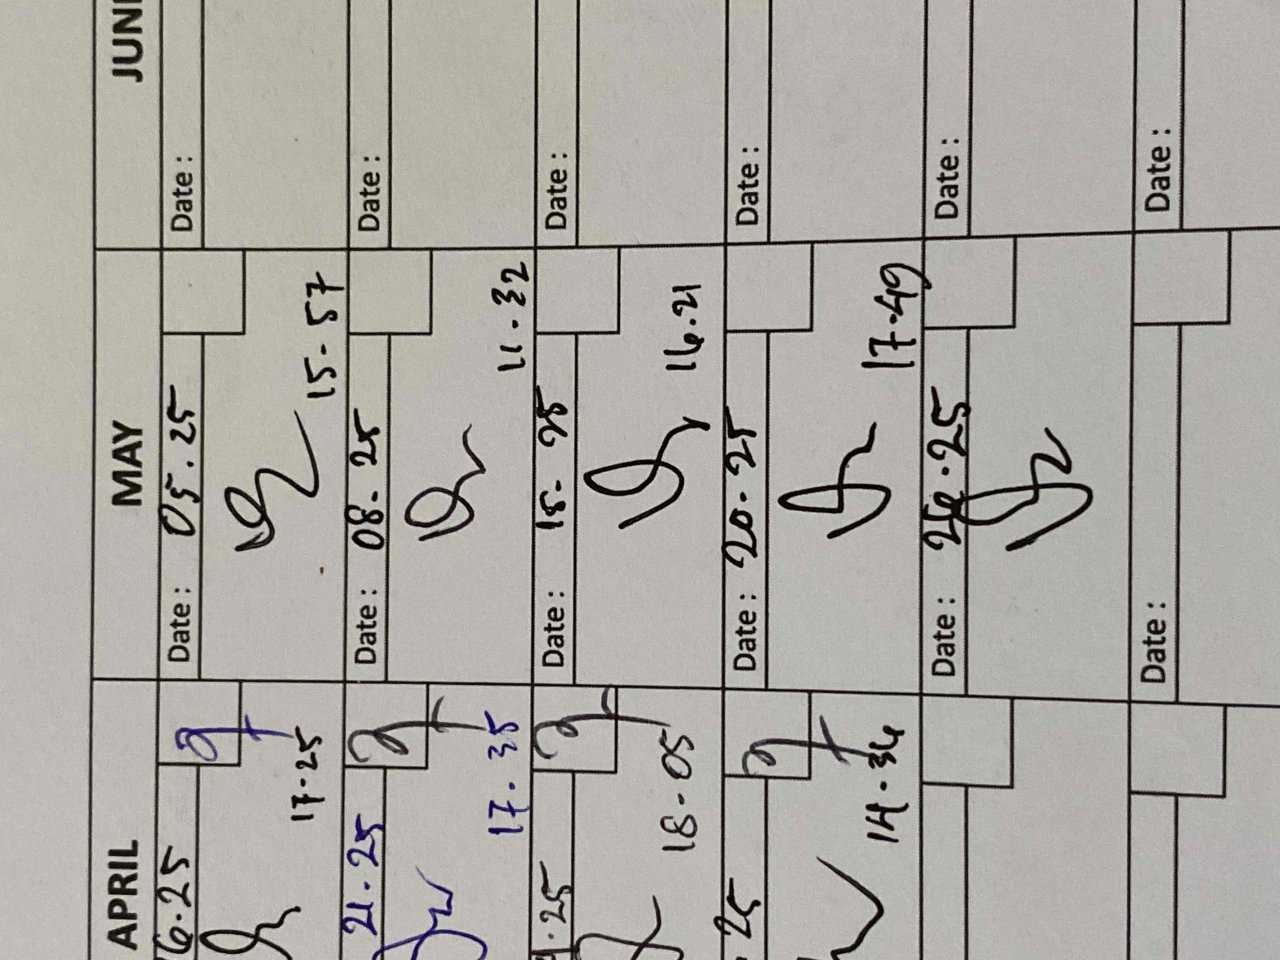 APRIL
6.25
17.25
21.25
17.35
.25
18.05
25
14.34
MAY
Date: 05.25
15.57
Date: 08.25
11.32
Date: 15.25
16.21
Date: 20.25
17.49
Date: 26.25
Date:
JUN
Date:
Date:
Date:
Date:
Date:
Date: